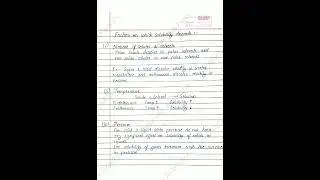 Factors on which solubility depends :-
(i) Nature of Solute & Solvent
Polar solute dissolve in polar solvents and
non polar solutes in non polar solvents.
Ex:- Sugar & salt dissolve readily in water
naphthalene and anthracene dissolve readily in
benzene
(ii) Temperature
Solute + Solvent → Solution
Endothermic Temp ↑ Solubility ↑
Exothermic Temp ↑ Solubility ↓
(iii) Pressure
For solid & liquid state pressure do not have
any significant effect on solubility of solids in
liquids.
For solubility of gases increases with the increase
in pressure